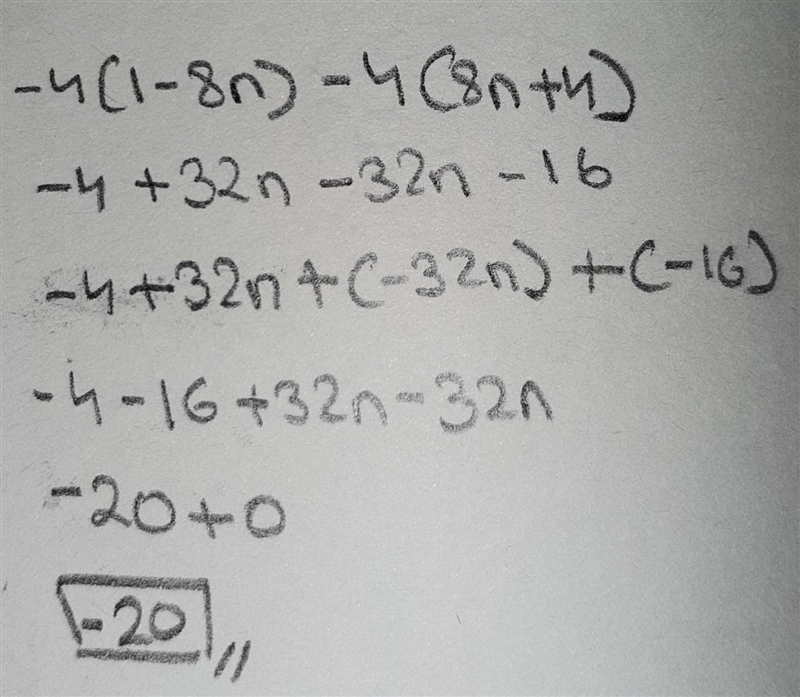 -4(1-8n) -4(8n+4)
-4 +32n -32n -16
-4+32n+(-32n) +(-16)
-4-16+32n-32n
-20+0
-20